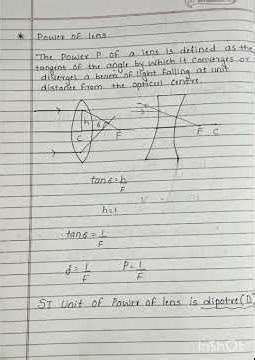 * Power of lens
"The Power P of a lens is defined as the
tangent of the angle by which it converges or
diverges a beam of light falling at unit
distance from the optical centre.
h δ
C F F C
tanδ = h/F
h=1
tanδ = 1/F
δ = 1/F P = 1/F
SI Unit of Power of lens is dipotre (D)
InShOt